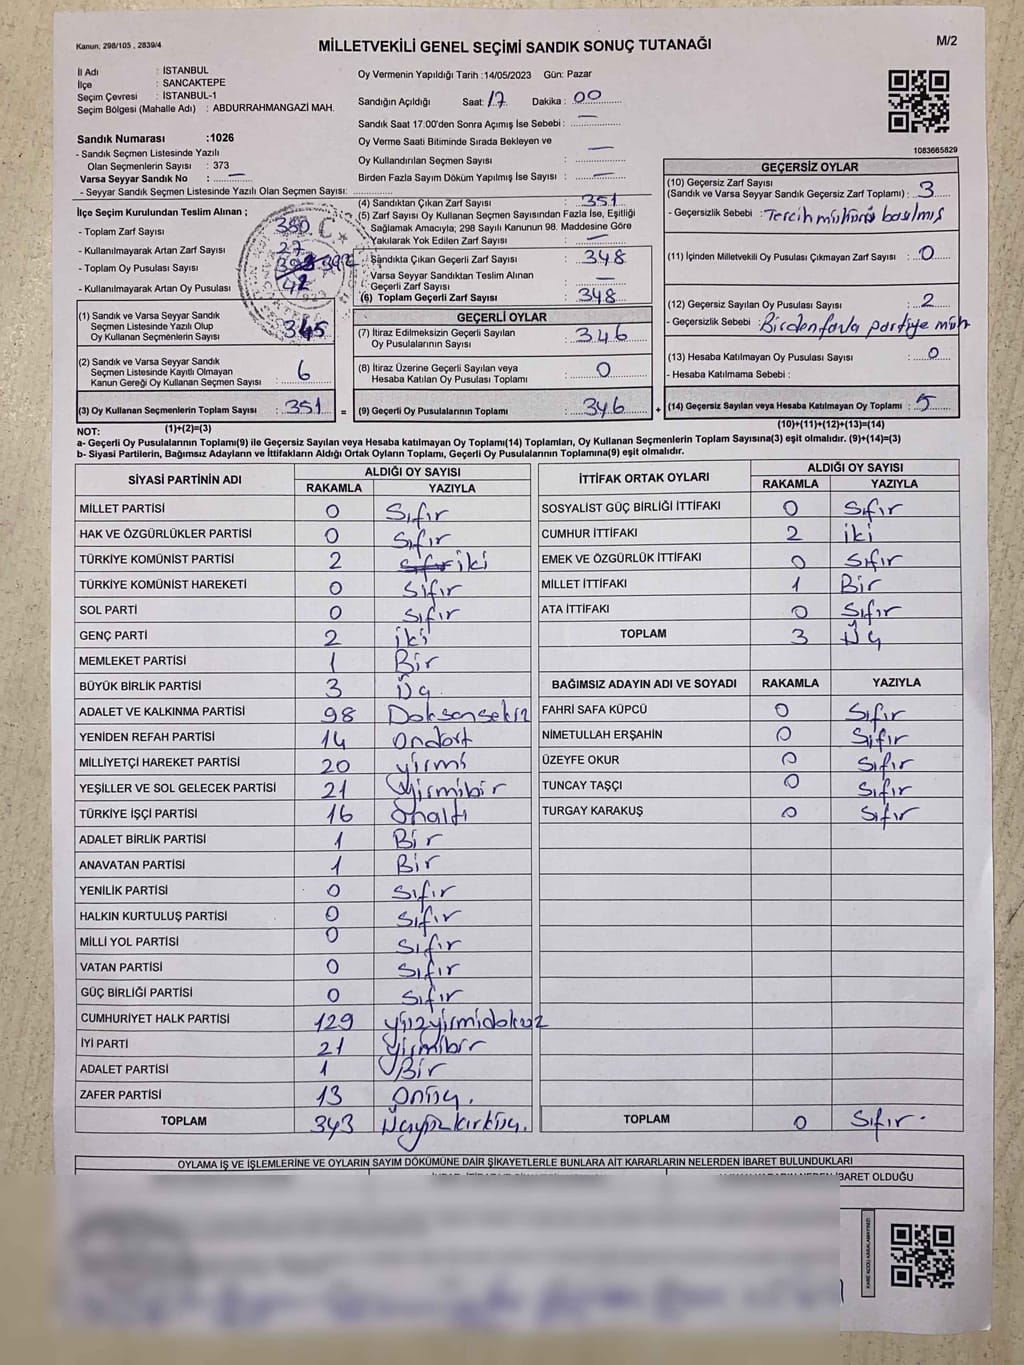 Kanun, 298/105 , 2839/4
MİLLETVEKİLİ GENEL SEÇİMİ SANDIK SONUÇ TUTANAĞI
M/2
İl Adı : İSTANBUL
İlçe : SANCAKTEPE
Seçim Çevresi : İSTANBUL-1
Seçim Bölgesi (Mahalle Adı) : ABDURRAHMANGAZİ MAH.
Sandık Numarası :1026
- Sandık Seçmen Listesinde Yazılı
Olan Seçmenlerin Sayısı : 373
Varsa Seyyar Sandık No : —
- Seyyar Sandık Seçmen Listesinde Yazılı Olan Seçmen Sayısı:
Oy Vermenin Yapıldığı Tarih :14/05/2023 Gün: Pazar
Sandığın Açıldığı Saat: 17 Dakika : 00
Sandık Saat 17:00'den Sonra Açımış İse Sebebi : —
Oy Verme Saati Bitiminde Sırada Bekleyen ve
Oy Kullandırılan Seçmen Sayısı : —
Birden Fazla Sayım Döküm Yapılmış İse Sayısı : —
1083665829
İlçe Seçim Kurulundan Teslim Alınan ;
- Toplam Zarf Sayısı 380
- Kullanılmayarak Artan Zarf Sayısı 27
- Toplam Oy Pusulası Sayısı 392
- Kullanılmayarak Artan Oy Pusulası 42
(1) Sandık ve Varsa Seyyar Sandık
Seçmen Listesinde Yazılı Olup
Oy Kullanan Seçmenlerin Sayısı 345
(2) Sandık ve Varsa Seyyar Sandık
Seçmen Listesinde Kayıtlı Olmayan
Kanun Gereği Oy Kullanan Seçmen Sayısı : 6
(3) Oy Kullanan Seçmenlerin Toplam Sayısı : 351 =
(1)+(2)=(3)
(4) Sandıktan Çıkan Zarf Sayısı : 351
(5) Zarf Sayısı Oy Kullanan Seçmen Sayısından Fazla İse, Eşitliği
Sağlamak Amacıyla; 298 Sayılı Kanunun 98. Maddesine Göre
Yakılarak Yok Edilen Zarf Sayısı : —
Sandıkta Çıkan Geçerli Zarf Sayısı : 348
Varsa Seyyar Sandıktan Teslim Alınan
Geçerli Zarf Sayısı : —
(6) Toplam Geçerli Zarf Sayısı : 348
GEÇERLİ OYLAR
(7) İtiraz Edilmeksizin Geçerli Sayılan
Oy Pusulalarının Sayısı : 346
(8) İtiraz Üzerine Geçerli Sayılan veya
Hesaba Katılan Oy Pusulası Toplamı : 0
(9) Geçerli Oy Pusulalarının Toplamı : 346 +
GEÇERSİZ OYLAR
(10) Geçersiz Zarf Sayısı
(Sandık ve Varsa Seyyar Sandık Geçersiz Zarf Toplamı) : 3
- Geçersizlik Sebebi : Tercih mührü basılmış
(11) İçinden Milletvekili Oy Pusulası Çıkmayan Zarf Sayısı : 0
(12) Geçersiz Sayılan Oy Pusulası Sayısı : 2
- Geçersizlik Sebebi : Birden fazla partiye müh
(13) Hesaba Katılmayan Oy Pusulası Sayısı : 0
- Hesaba Katılmama Sebebi :
(14) Geçersiz Sayılan veya Hesaba Katılmayan Oy Toplamı : 5
(10)+(11)+(12)+(13)=(14)
NOT:
a- Geçerli Oy Pusulasının Toplamı(9) ile Geçersiz Sayılan veya Hesaba katılmayan Oy Toplamı(14) Toplamları, Oy Kullanan Seçmenlerin Toplam Sayısına(3) eşit olmalıdır. (9)+(14)=(3)
b- Siyasi Partilerin, Bağımsız Adayların ve İttifakların Aldığı Ortak Oyların Toplamı, Geçerli Oy Pusulalarının Toplamına(9) eşit olmalıdır.
SİYASİ PARTİNİN ADI ALDIĞI OY SAYISI
RAKAMLA YAZIYLA
MİLLET PARTİSİ 0 Sıfır
HAK VE ÖZGÜRLÜKLER PARTİSİ 0 Sıfır
TÜRKİYE KOMÜNİST PARTİSİ 2 sıfır iki
TÜRKİYE KOMÜNİST HAREKETİ 0 Sıfır
SOL PARTİ 0 Sıfır
GENÇ PARTİ 2 iki
MEMLEKET PARTİSİ 1 Bir
BÜYÜK BİRLİK PARTİSİ 3 Üç
ADALET VE KALKINMA PARTİSİ 98 Doksansekiz
YENİDEN REFAH PARTİSİ 14 Ondört
MİLLİYETÇİ HAREKET PARTİSİ 20 yirmi
YEŞİLLER VE SOL GELECEK PARTİSİ 21 yirmibir
TÜRKİYE İŞÇİ PARTİSİ 16 Onaltı
ADALET BİRLİK PARTİSİ 1 Bir
ANAVATAN PARTİSİ 1 Bir
YENİLİK PARTİSİ 0 Sıfır
HALKIN KURTULUŞ PARTİSİ 0 Sıfır
MİLLİ YOL PARTİSİ 0 Sıfır
VATAN PARTİSİ 0 Sıfır
GÜÇ BİRLİĞİ PARTİSİ 0 Sıfır
CUMHURİYET HALK PARTİSİ 129 yüzyirmidokuz
İYİ PARTİ 21 yirmibir
ADALET PARTİSİ 1 Bir
ZAFER PARTİSİ 13 Onüç.
TOPLAM 343 Üçyüzkırküç.
İTTİFAK ORTAK OYLARI ALDIĞI OY SAYISI
RAKAMLA YAZIYLA
SOSYALİST GÜÇ BİRLİĞİ İTTİFAKI 0 Sıfır
CUMHUR İTTİFAKI 2 iki
EMEK VE ÖZGÜRLÜK İTTİFAKI 0 Sıfır
MİLLET İTTİFAKI 1 Bir
ATA İTTİFAKI 0 Sıfır
TOPLAM 3 Üç
BAĞIMSIZ ADAYIN ADI VE SOYADI RAKAMLA YAZIYLA
FAHRİ SAFA KÜPCÜ 0 Sıfır
NİMETULLAH ERŞAHİN 0 Sıfır
ÜZEYFE OKUR 0 Sıfır
TUNCAY TAŞÇI 0 Sıfır
TURGAY KARAKUŞ 0 Sıfır
TOPLAM 0 Sıfır.
OYLAMA İŞ VE İŞLEMLERİNE VE OYLARIN SAYIM DÖKÜMÜNE DAİR ŞİKAYETLERLE BUNLARA AİT KARARLARIN NELERDEN İBARET BULUNDUKLARI
İBARET OLDUĞU